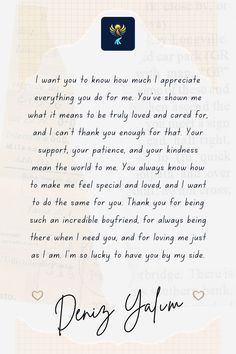 I want you to know how much I appreciate
everything you do for me. You've shown me
what it means to be truly loved and cared for,
and I can't thank you enough for that. Your
support, your patience, and your kindness
mean the world to me. You always know how
to make me feel special and loved, and I want
to do the same for you. Thank you for being
such an incredible boyfriend, for always being
there when I need you, and for loving me just
as I am. I'm so lucky to have you by my side.
Deniz Yalım